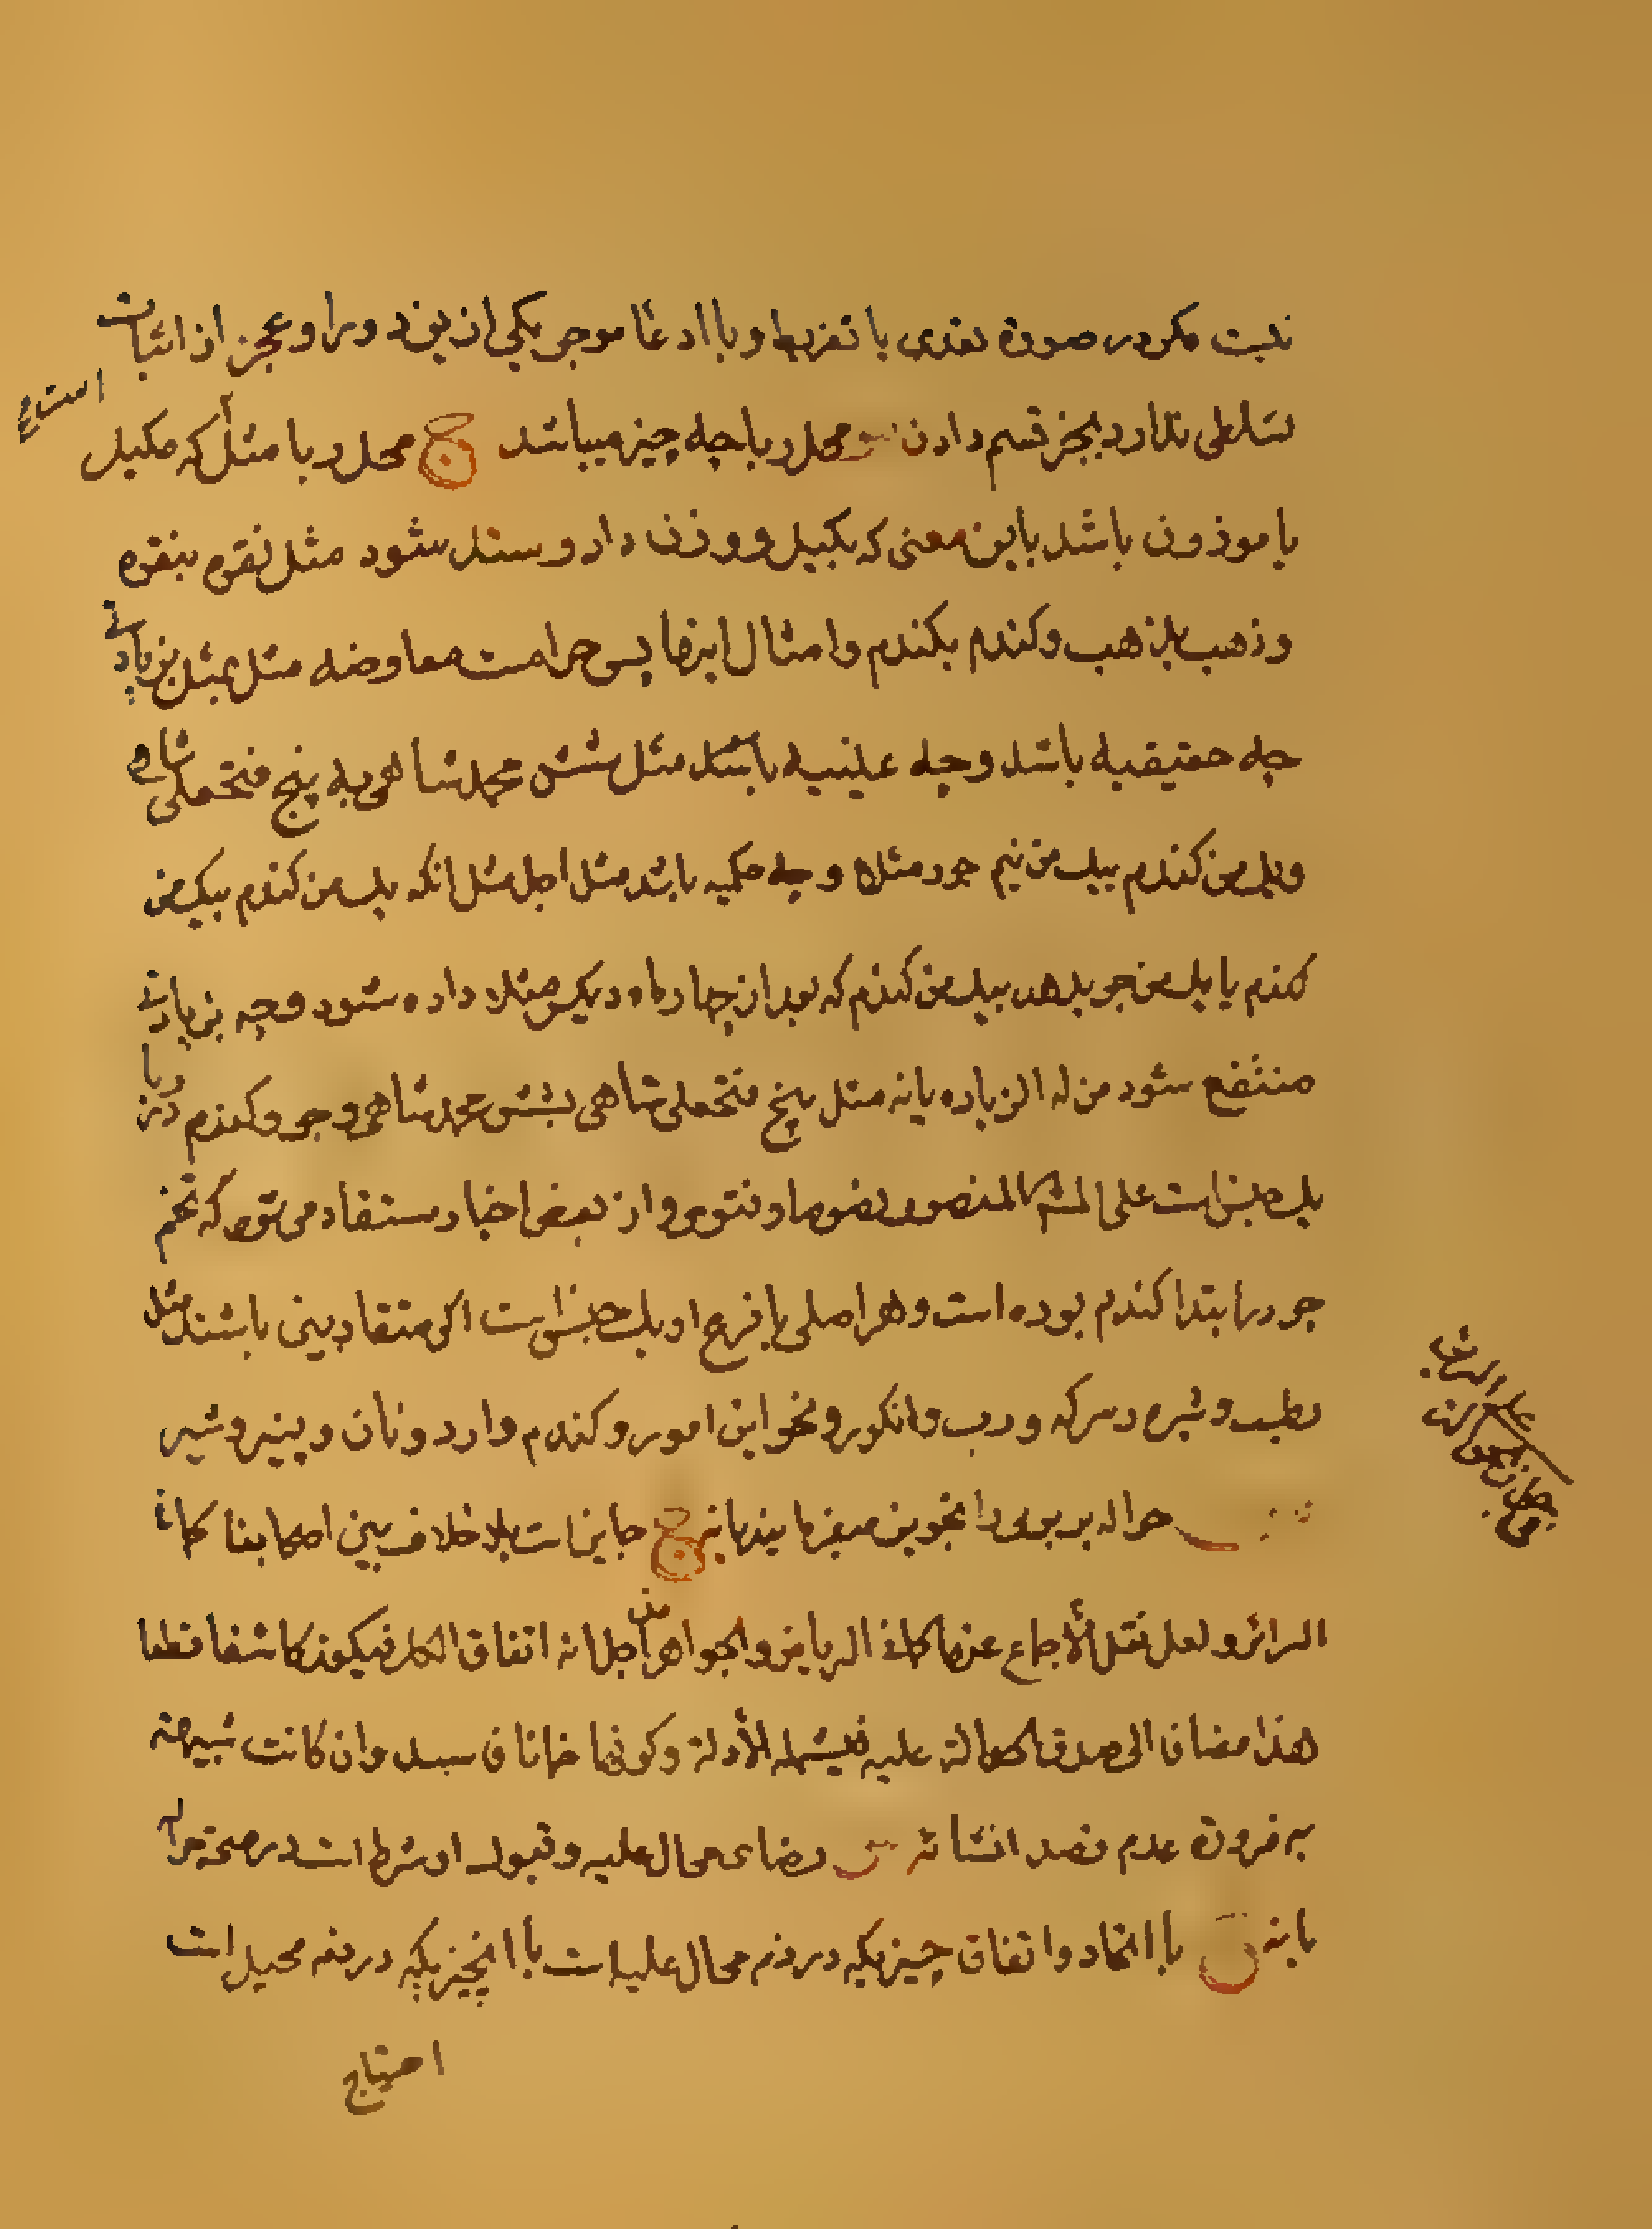 نیست مکر در صورة تعدی یا تفریط و با ادعا موجر یکی از این دو را و عجز از اثبات
تسلطی ندارد بجز قسم دادن س محل ربا چه چیز میباشد ج محل ربا مثل که مکیل
یا موزون باشد باین معنی که بکیل و وزن داد و ستد شود مثل نقره بنقره
و ذهب بذهب و کندم بکندم و امثال اینها پس حرامست معاوضه مثل بمثل بزیادتی
چه حقیقیه باشد و چه عینیه باشد مثل شش محمد شاهی به پنج فتحعلی شاهی
و یک من کندم بیک من نیم جو مثلا و چه حکمیه باشد مثل اجل مثل انکه یک من کندم بیک من
کندم یا یک من جو بدهد بیک من کندم که بعد از چهار ماه دیکر مثلا داده شود و چه بزیادتی
منتفع شود من له الزیاده یا نه مثل پنج فتحعلی شاهی بشش محمد شاهی و جو و کندم در ربا
یک جنس است علی المشهور المنصور نصوصا و فتوی و از بعض اخبار مستفاد می شود که تخم
جو در ابتدا کندم بوده است و هر اصلی با فرع او یک جنس است اکر متفاوتین باشند مثل
رطب و شیره و سرکه و رب و انکور و نحو این امور و کندم و ارد و نان و پنیر و شیر
حواله بر بری را تجویز میفرمایید یا نه ج جایز است بلا خلاف بین اصحابنا کما فی
السرائر و لعل نقل الأجماع عنها کما فی الریاض و الجواهر من اجل انه اتفاق الکل فیکون کاشفا قطعا
هذا مضافا الی صدق الحوالة علیه فیشمله الأدلة و کونها ضمانا فاسد و ان کانت شبیهة
به ضرورة عدم قصد انشائه س رضای محال علیه و قبول او شرط است در صحة حواله
یا نه ج با اتحاد و اتفاق چیزیکه در ذمه محال علیه است با انچیزیکه در ذمه محیل است
احتیاج